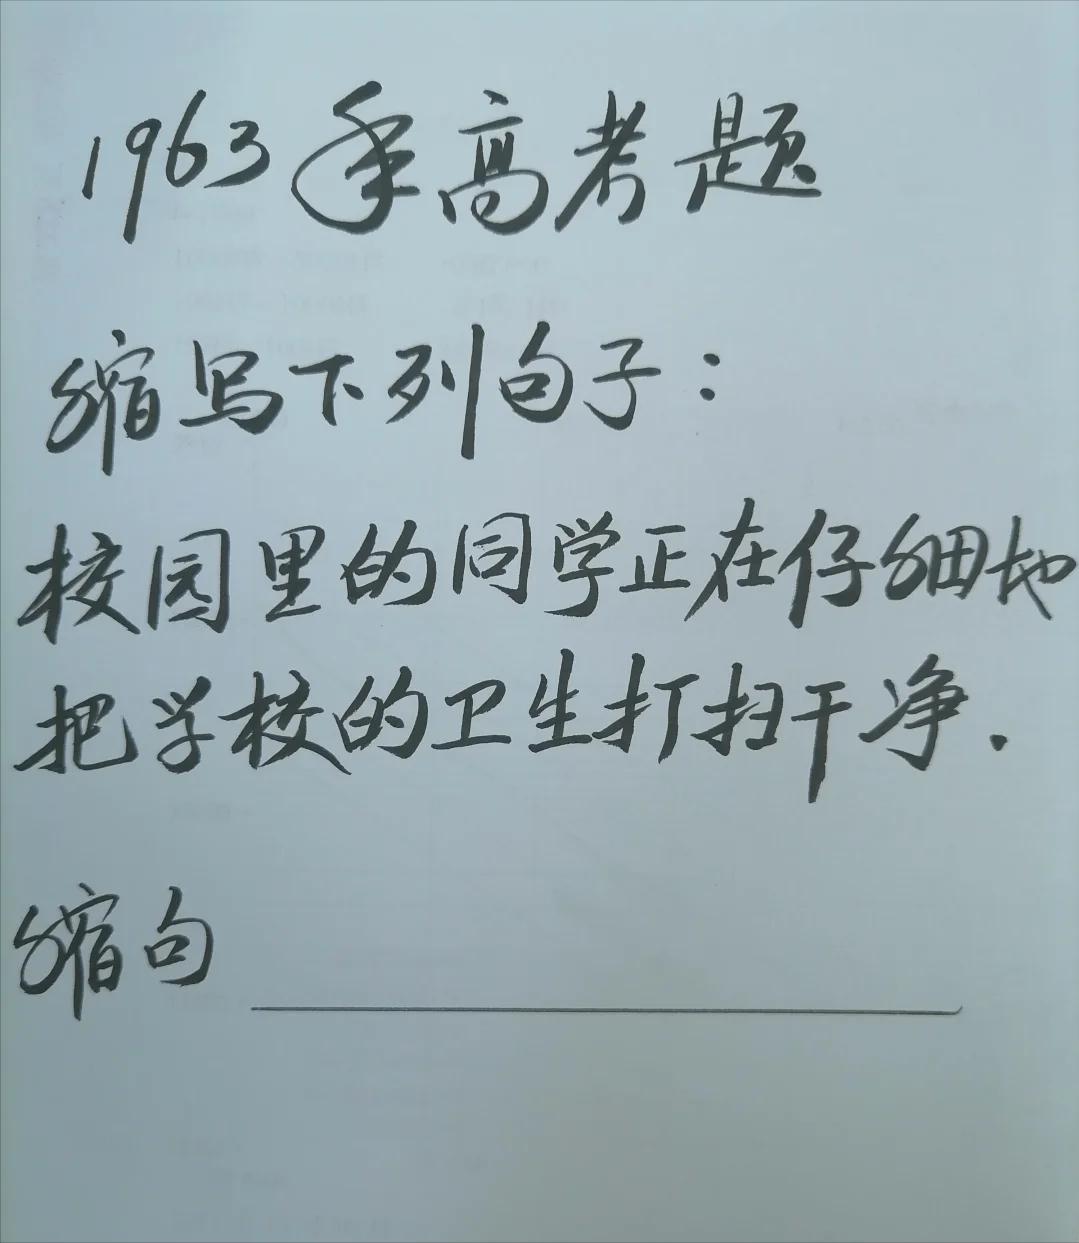 1963年高考题
缩写下列句子：
校园里的同学正在仔细地
把学校的卫生打扫干净.
缩句